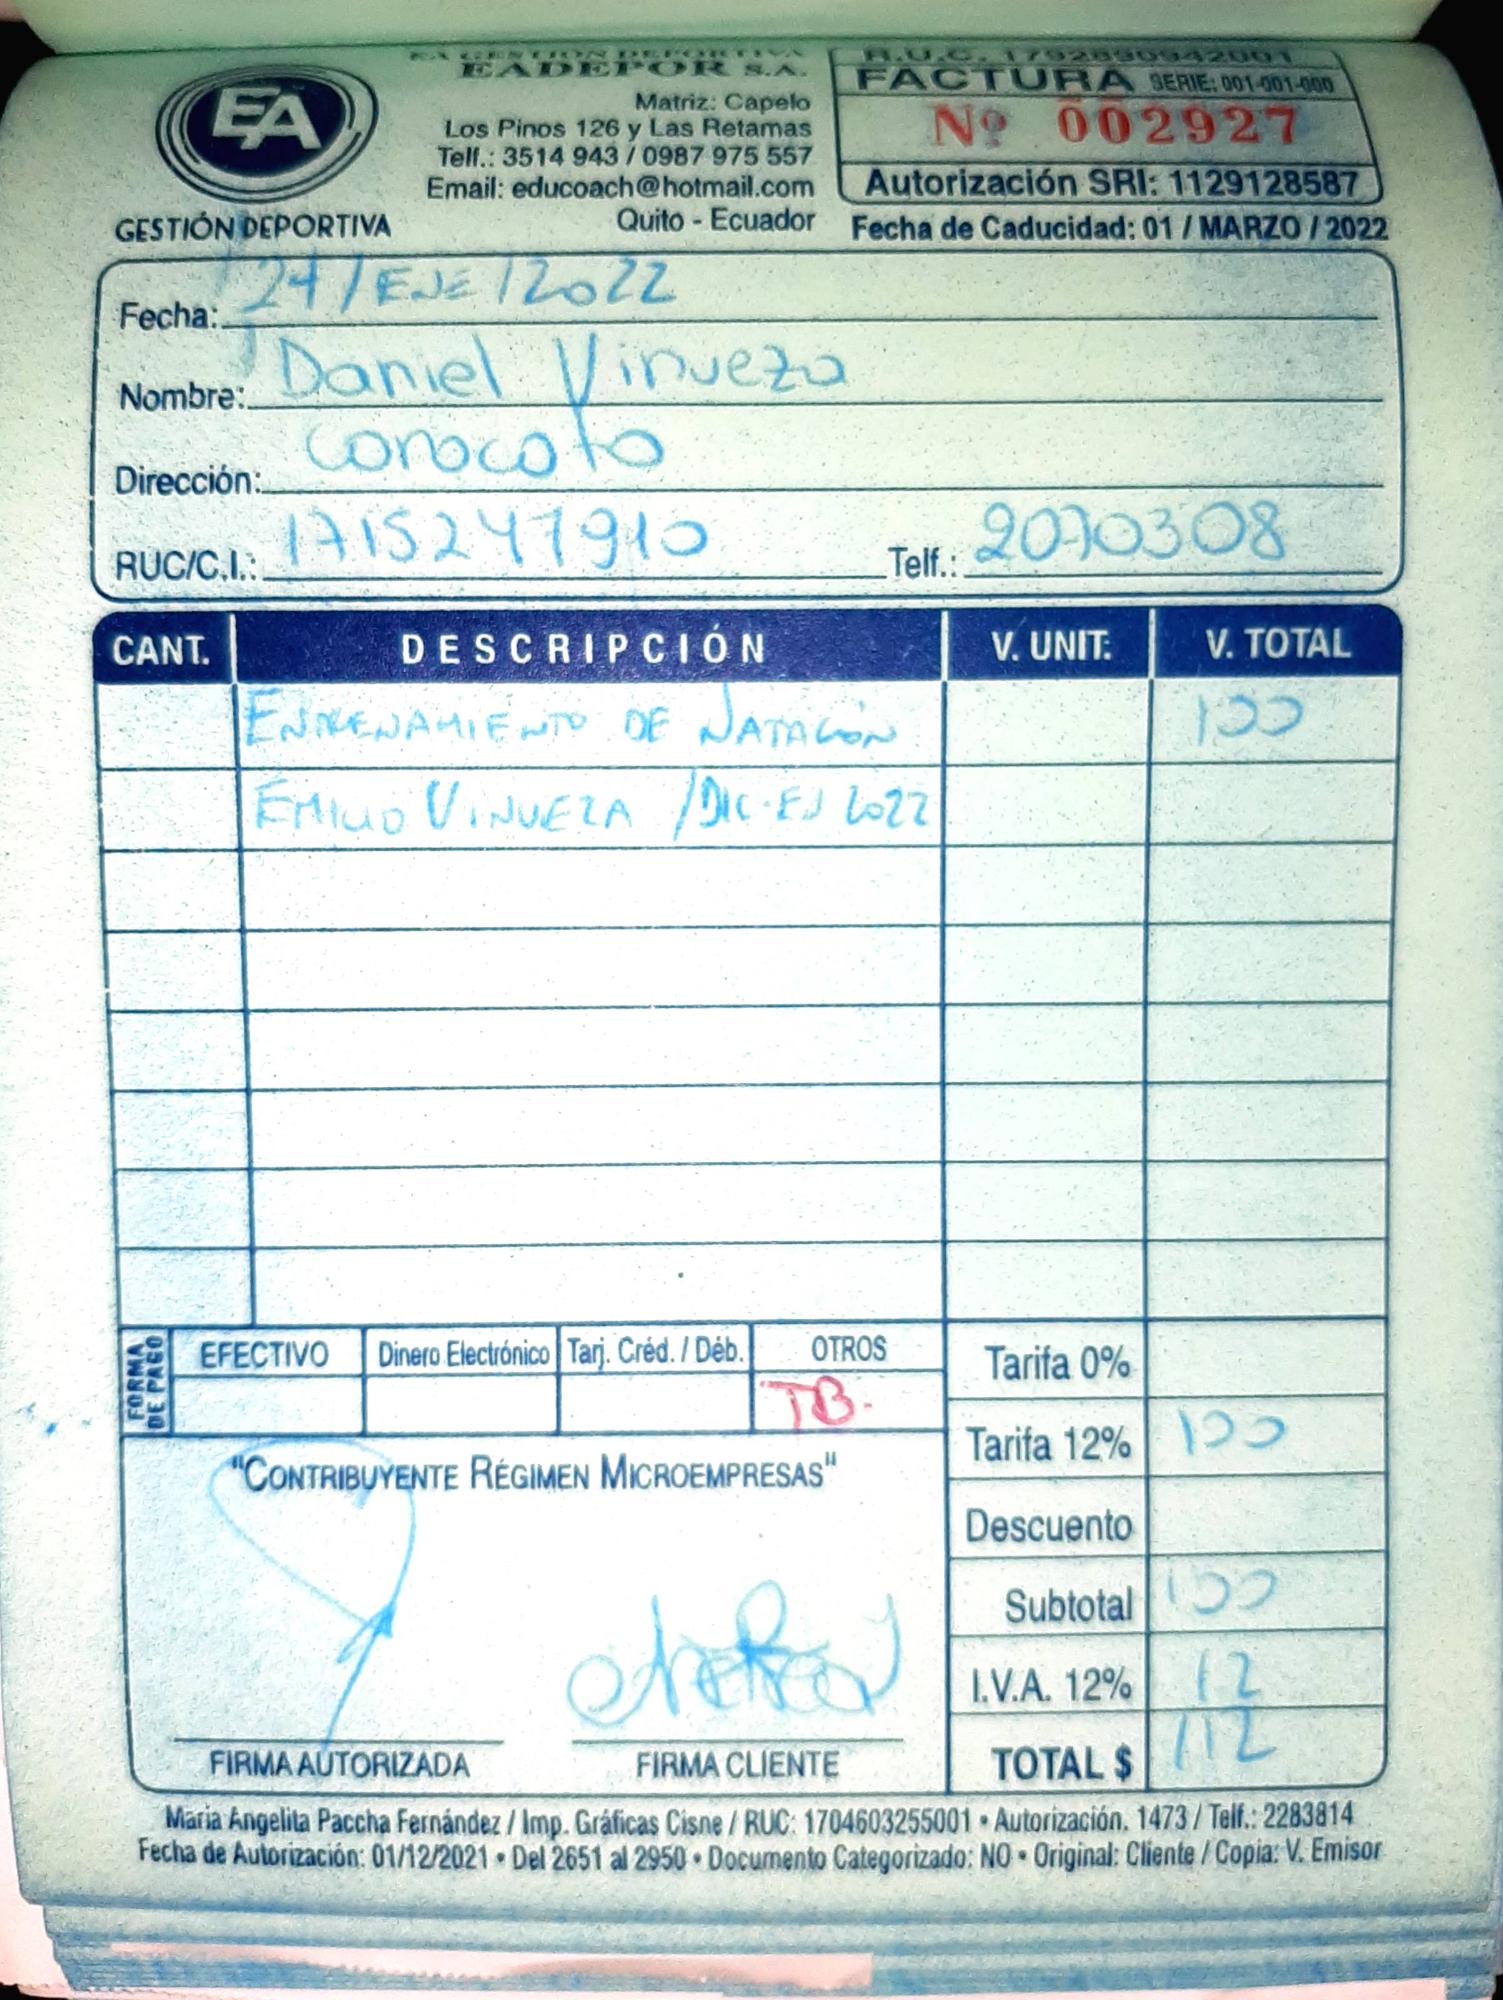 EA GESTIÓN DEPORTIVA
EADEPOR S.A.
Matriz: Capelo
Los Pinos 126 y Las Retamas
Telf.: 3514 943 / 0987 975 557
Email: educoach@hotmail.com
Quito - Ecuador
EA
GESTIÓN DEPORTIVA
R.U.C. 1792890942001
FACTURA SERIE: 001-001-000
Nº 002927
Autorización SRI: 1129128587
Fecha de Caducidad: 01 / MARZO / 2022
Fecha: 24/ENE/2022
Nombre: Daniel Vinueza
Dirección: Conocoto
RUC/C.I.: 1715247910 Telf.: 2070308
CANT. DESCRIPCIÓN V. UNIT. V. TOTAL
ENTRENAMIENTO DE NATACIÓN 100
EMILIO VINUEZA /DIC-EN 2022
FORMA DE PAGO
EFECTIVO Dinero Electrónico Tarj. Créd. / Déb. OTROS
TB.
Tarifa 0%
Tarifa 12% 100
Descuento
Subtotal 100
I.V.A. 12% 12
TOTAL $ 112
"CONTRIBUYENTE RÉGIMEN MICROEMPRESAS"
FIRMA AUTORIZADA FIRMA CLIENTE
Maria Angelita Paccha Fernández / Imp. Gráficas Cisne / RUC: 1704603255001 • Autorización. 1473 / Telf.: 2283814
Fecha de Autorización: 01/12/2021 • Del 2651 al 2950 • Documento Categorizado: NO • Original: Cliente / Copia: V. Emisor